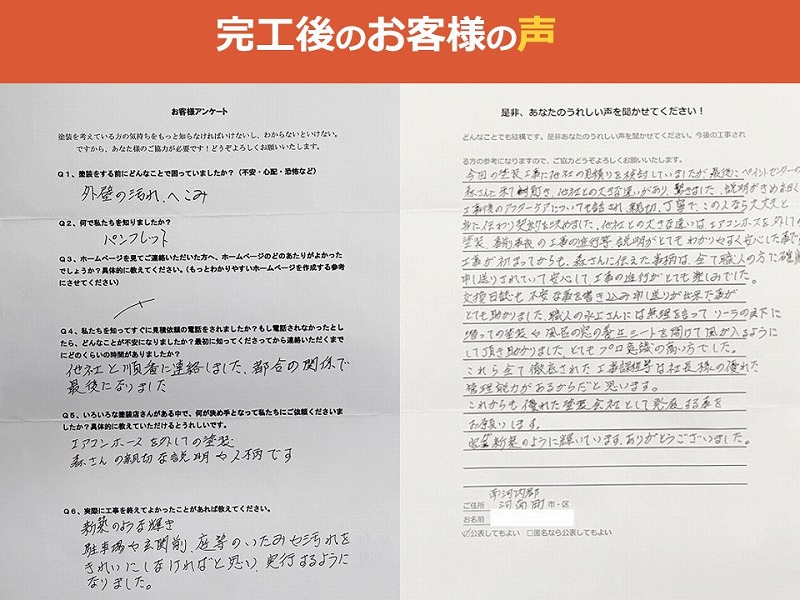 完工後のお客様の声
お客様アンケート
塗装を考えている方の気持ちをもっと知らなければいけないし、わからないといけない。
ですから、あなた様のご協力が必要です!どうぞよろしくお願いいたします。
Q1、塗装をする前にどんなことで困っていましたか?(不安・心配・恐怖など)
外壁の汚れ、へこみ
Q2、何で私たちを知りましたか?
パンフレット
Q3、ホームページを見てご連絡いただいた方へ、ホームページのどのあたりがよかった
でしょうか?具体的に教えてください。(もっとわかりやすいホームページを作成する参考
にさせてください)
Q4、私たちを知ってすぐに見積依頼の電話をされましたか?もし電話されなかったとし
たら、どんなことが不安になりましたか?最初に知ってくださってから連絡いただくまで
にどのくらいの時間がありましたか?
他社と順番に連絡しました、都合の関係で
最後になりました
Q5、いろいろな塗装店さんがある中で、何が決め手となって私たちにご依頼くださいま
したか?具体的に教えていただけるとうれしいです。
エアコンホースを外しての塗装
森さんの親切な説明や人柄です
Q6、実際に工事を終えてよかったことがあれば教えてください。
新築のような輝き
駐車場や玄関前、庭等のいたみや汚れを
きれいにしなければと思い、実行するように
なりました。
是非、あなたのうれしい声を聞かせてください!
どんなことでも結構です。是非あなたのうれしい声を聞かせてください。今後の工事され
る方の参考になりますので、ご協力どうぞよろしくお願いいたします。
今回の塗装工事に他社の見積りを検討していましたが最後にペイントセンターの
森さんに来て頂き、他社との大きな違いがあり、驚きました 説明がきめ細かく
工事後のアフターケアについても話され、親切、丁寧で、この人なら大丈夫と
身に伝わり契約を決めました、他社との大きな違いはエアコンホースを外しての
塗装、事前事後の工事の進行等、説明がとてもわかりやすく安心した事です
工事が初まってからも、森さんに伝えた事柄は、全て職人の方に確実
申し送りされていて安心して、工事の進行がとても楽しみでした。
交換日誌も不安な事を書き込み申し送りが出来た事が
とても助かりました、職人の水上さんには無理を言ってソーラの真下に
潜っての塗装や風呂の窓の養生シートを開けて風が入るように
して頂き助かりました、とてもプロ意識の高い方でした。
これら全て徹底された工事課程等は社長様の優れた
管理能力があるからだと思います。
これからも優れた塗装会社として発展する事を
お願いします。
新築のように輝いています、ありがとうございました。
南河内郡
ご住所 河南町 市・区
お名前
☑公表してもよい □匿名なら公表してもよい